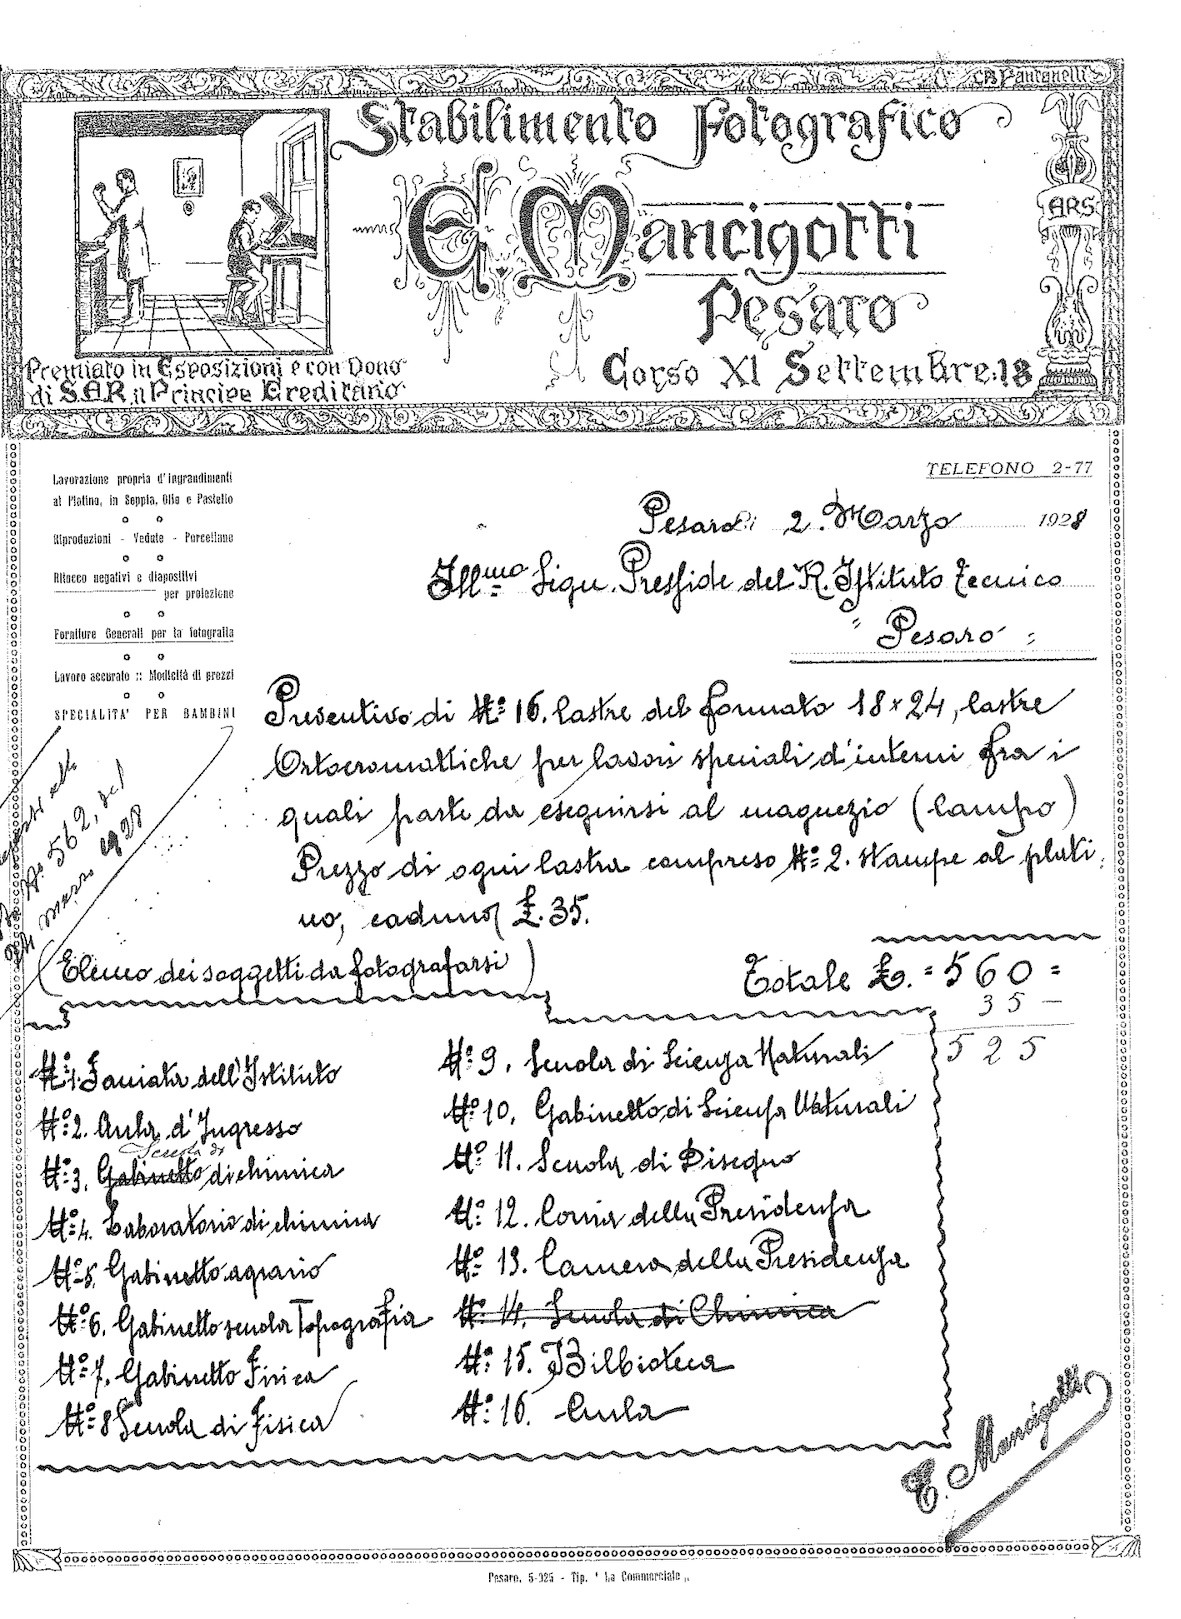 C.B. Pantanelli
Stabilimento Fotografico
E. Mancigotti
Pesaro
Corso XI Settembre, 18
ARS
Premiato in Esposizioni e con Dono
di S.A.R. il Principe Ereditario
TELEFONO 2-77
Lavorazione propria d'ingrandimenti
al Platino, in Seppia, Olio e Pastello
Riproduzioni - Vedute - Porcellane
Ritocco negativi e diapositivi
per proiezione
Forniture Generali per la fotografia
Lavoro accurato :: Modicità di prezzi
SPECIALITA' PER BAMBINI
Pesaro li 2. Marzo 1928
Ill.mo Sign. Presside del R. Istituto Tecnico
" Pesaro :
Preventivo di N.º 16. lastre del formato 18 x 24, lastre
Ortocromattiche per lavori speciali d'interni fra i
quali parte da eseguirsi al magnezio (lampo)
Prezzo di ogni lastra compreso N.º 2. stampe al plati
no, caduna £. 35.
Nº 562, del
marzo 1928
(Elenco dei soggetti da fotografarsi)
Totale £. = 560 =
35 -
525
N.º 1. Facciata dell'Istituto
N.º 2. Aula d'Ingresso
Scuola di
N.º 3. Gabinetto di chimica
N.º 4. Laboratorio di chimica
N.º 5. Gabinetto agrario
N.º 6. Gabinetto scuola Topografia
N.º 7. Gabinetto Fisica
N.º 8 Scuola di Fisica
N.º 9. Scuola di Scienza Naturali
N.º 10. Gabinetto di Scienza Naturali
N.º 11. Scuola di Disegno
N.º 12. Corsia della Presidenza
N.º 13. Camera della Presidenza
N.º 14. Scuola di Chimica
N.º 15. Bilbioteca
N.º 16. Aula
E. Mancigotti
Pesaro, 5-925 - Tip. " La Commerciale "